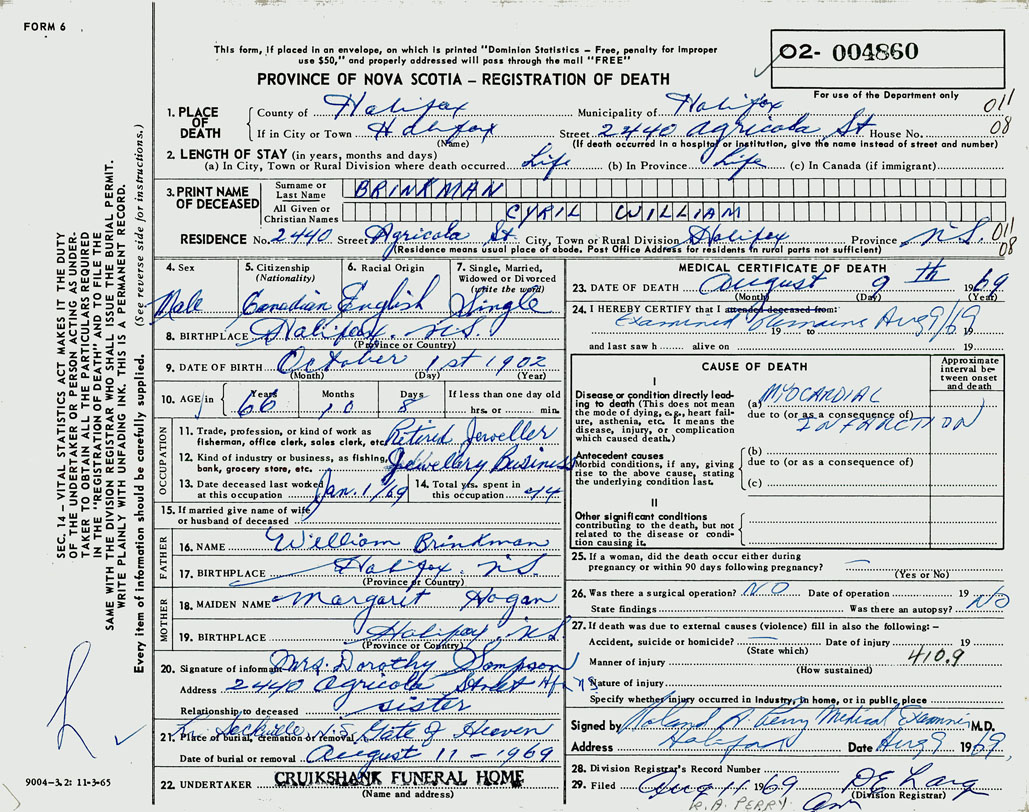 FORM 6
This form, if placed in an envelope, on which is printed "Dominion Statistics – Free, penalty for improper
use $50," and properly addressed will pass through the mail "FREE"
PROVINCE OF NOVA SCOTIA – REGISTRATION OF DEATH
02- 004860
For use of the Department only
011
08
1. PLACE OF DEATH
County of Halifax Municipality of Halifax
If in City or Town Halifax Street 2440 Agricola St House No.
(Name) (If death occurred in a hospital or institution, give the name instead of street and number)
2. LENGTH OF STAY (in years, months and days)
(a) In City, Town or Rural Division where death occurred Life (b) In Province Life (c) In Canada (if immigrant)
3. PRINT NAME OF DECEASED
Surname or Last Name BRINKMAN
All Given or Christian Names CYRIL WILLIAM
RESIDENCE No. 2440 Street Agricola St. City, Town or Rural Division Halifax Province N.S. 011
08
(Residence means usual place of abode. Post Office Address for residents in rural parts not sufficient)
4. Sex
Male
5. Citizenship
(Nationality)
Canadian
6. Racial Origin
English
7. Single, Married,
Widowed or Divorced
(write the word)
Single
8. BIRTHPLACE Halifax. N.S.
(Province or Country)
9. DATE OF BIRTH October 1st 1902
(Month) (Day) (Year)
10. AGE in Years 66 Months 10 Days 8 If less than one day old
hrs. or min.
OCCUPATION
11. Trade, profession, or kind of work as
fisherman, office clerk, sales clerk, etc. Retired Jeweller
12. Kind of industry or business, as fishing,
bank, grocery store, etc. Jewellery Business
13. Date deceased last worked
at this occupation Jan. 1/69
14. Total yrs. spent in
this occupation 44
15. If married give name of wife
or husband of deceased
FATHER
16. NAME William Brinkman
17. BIRTHPLACE Halifax. N.S.
(Province or Country)
MOTHER
18. MAIDEN NAME Margaret Hogan
19. BIRTHPLACE Halifax, N.S.
(Province or Country)
20. Signature of informant Mrs. Dorothy Simpson
Address 2440 Agricola Street Hfx NS
Relationship to deceased sister
21. Place of burial, cremation or removal Lr. Sackville N.S. Gate of Heaven
Date of burial or removal August 11 – 1969
22. UNDERTAKER CRUIKSHANK FUNERAL HOME
(Name and address)
MEDICAL CERTIFICATE OF DEATH
23. DATE OF DEATH August 9th 1969
(Month) (Day) (Year)
24. I HEREBY CERTIFY that I attended deceased from:
Examined Remains Aug 9/69
19 to 19
and last saw h alive on 19
CAUSE OF DEATH
Approximate interval between onset and death
I
Disease or condition directly leading
to death (This does not mean
the mode of dying, e.g., heart failure,
asthenia, etc. It means the
disease, injury, or complication
which caused death.)
(a) MYOCARDIAL
due to (or as a consequence of)
INFARCTION
Antecedent causes
Morbid conditions, if any, giving
rise to the above cause, stating
the underlying condition last.
(b)
due to (or as a consequence of)
(c)
II
Other significant conditions
contributing to the death, but not
related to the disease or condition
causing it.
25. If a woman, did the death occur either during
pregnancy or within 90 days following pregnancy? —
(Yes or No)
26. Was there a surgical operation? NO Date of operation 19
State findings Was there an autopsy? NO
27. If death was due to external causes (violence) fill in also the following: –
Accident, suicide or homicide? — Date of injury 19
(State which)
Manner of injury 410.9
(How sustained)
Nature of injury
Specify whether injury occurred in industry, in home, or in public place
Signed by Roland A. Perry Medical Examiner M.D.
Address Halifax Date Aug 9 1969
28. Division Registrar's Record Number
29. Filed Aug 11 1969
(Division Registrar)
R. A. PERRY
SEC. 14 – VITAL STATISTICS ACT MAKES IT THE DUTY
OF THE UNDERTAKER OR PERSON ACTING AS UNDERTAKER
TO OBTAIN ALL THE PARTICULARS REQUIRED
IN THE "REGISTRATION OF DEATH" AND TO FILE THE
SAME WITH THE DIVISION REGISTRAR WHO SHALL ISSUE THE BURIAL PERMIT.
WRITE PLAINLY WITH UNFADING INK. THIS IS A PERMANENT RECORD.
Every item of information should be carefully supplied. (See reverse side for instructions.)
9004-3,2: 11-3-65